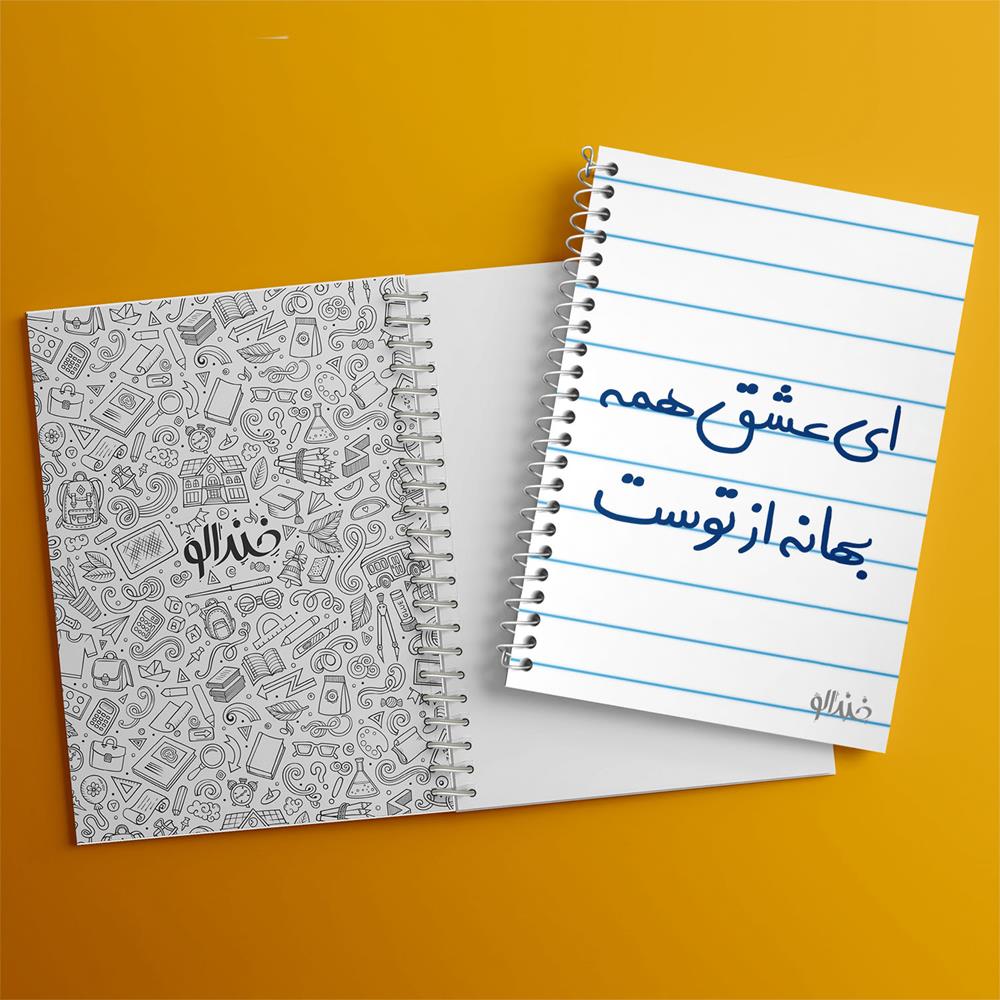 ای عشق همه
بهانه از توست
خندالو
خندالو